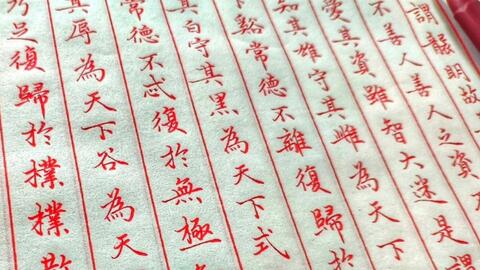 謂襲明故
不善人善人之資
愛其資雖智大迷是謂
知其雄守其雌為天下
下谿常德不離復歸於
其白守其黑為天下式
常德不忒復於無極
其辱為天下谷為天
乃足復歸於樸樸散